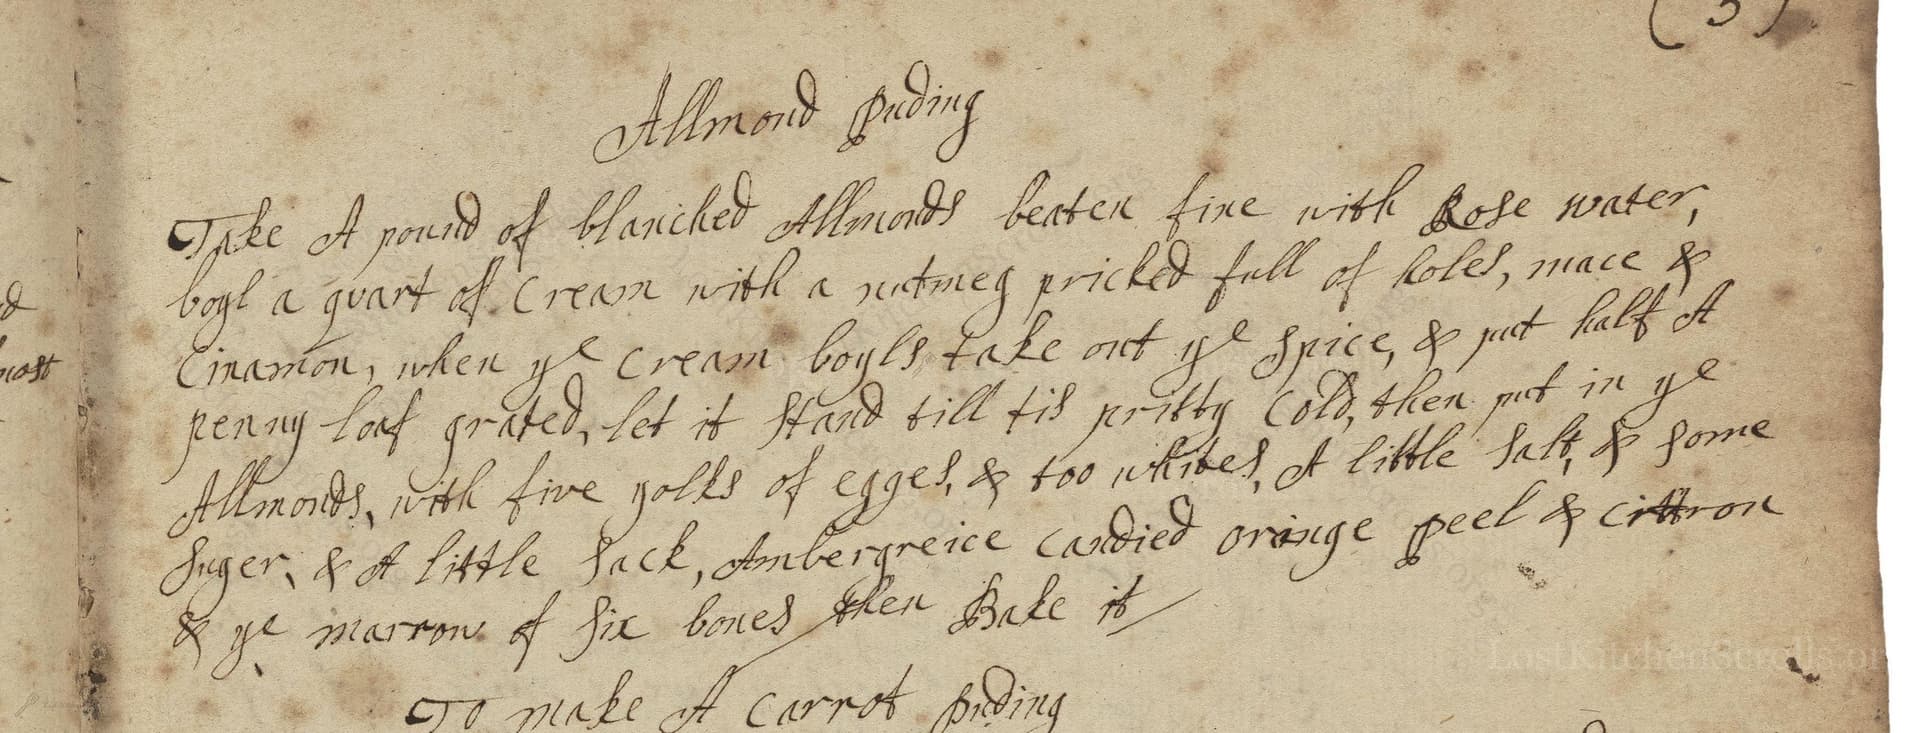 (3)
Allmond Puding
Take A pound of blanched Allmonds beaten fine with Rose water,
boyl a quart of Cream with a nutmeg pricked full of holes, mace &
Cinamon, when ye Cream boyls take out ye spice, & put half A
penny loaf grated, let it stand till tis pritty Cold, then put in ye
Allmonds, with five yolks of egges, & too whites, A little salt, & some
suger, & A little sack, Ambergreice candied orange peel & cittron
& ye marrow of six bones then Bake it
To make A Carrot puding
LostKitchenScrolls.or